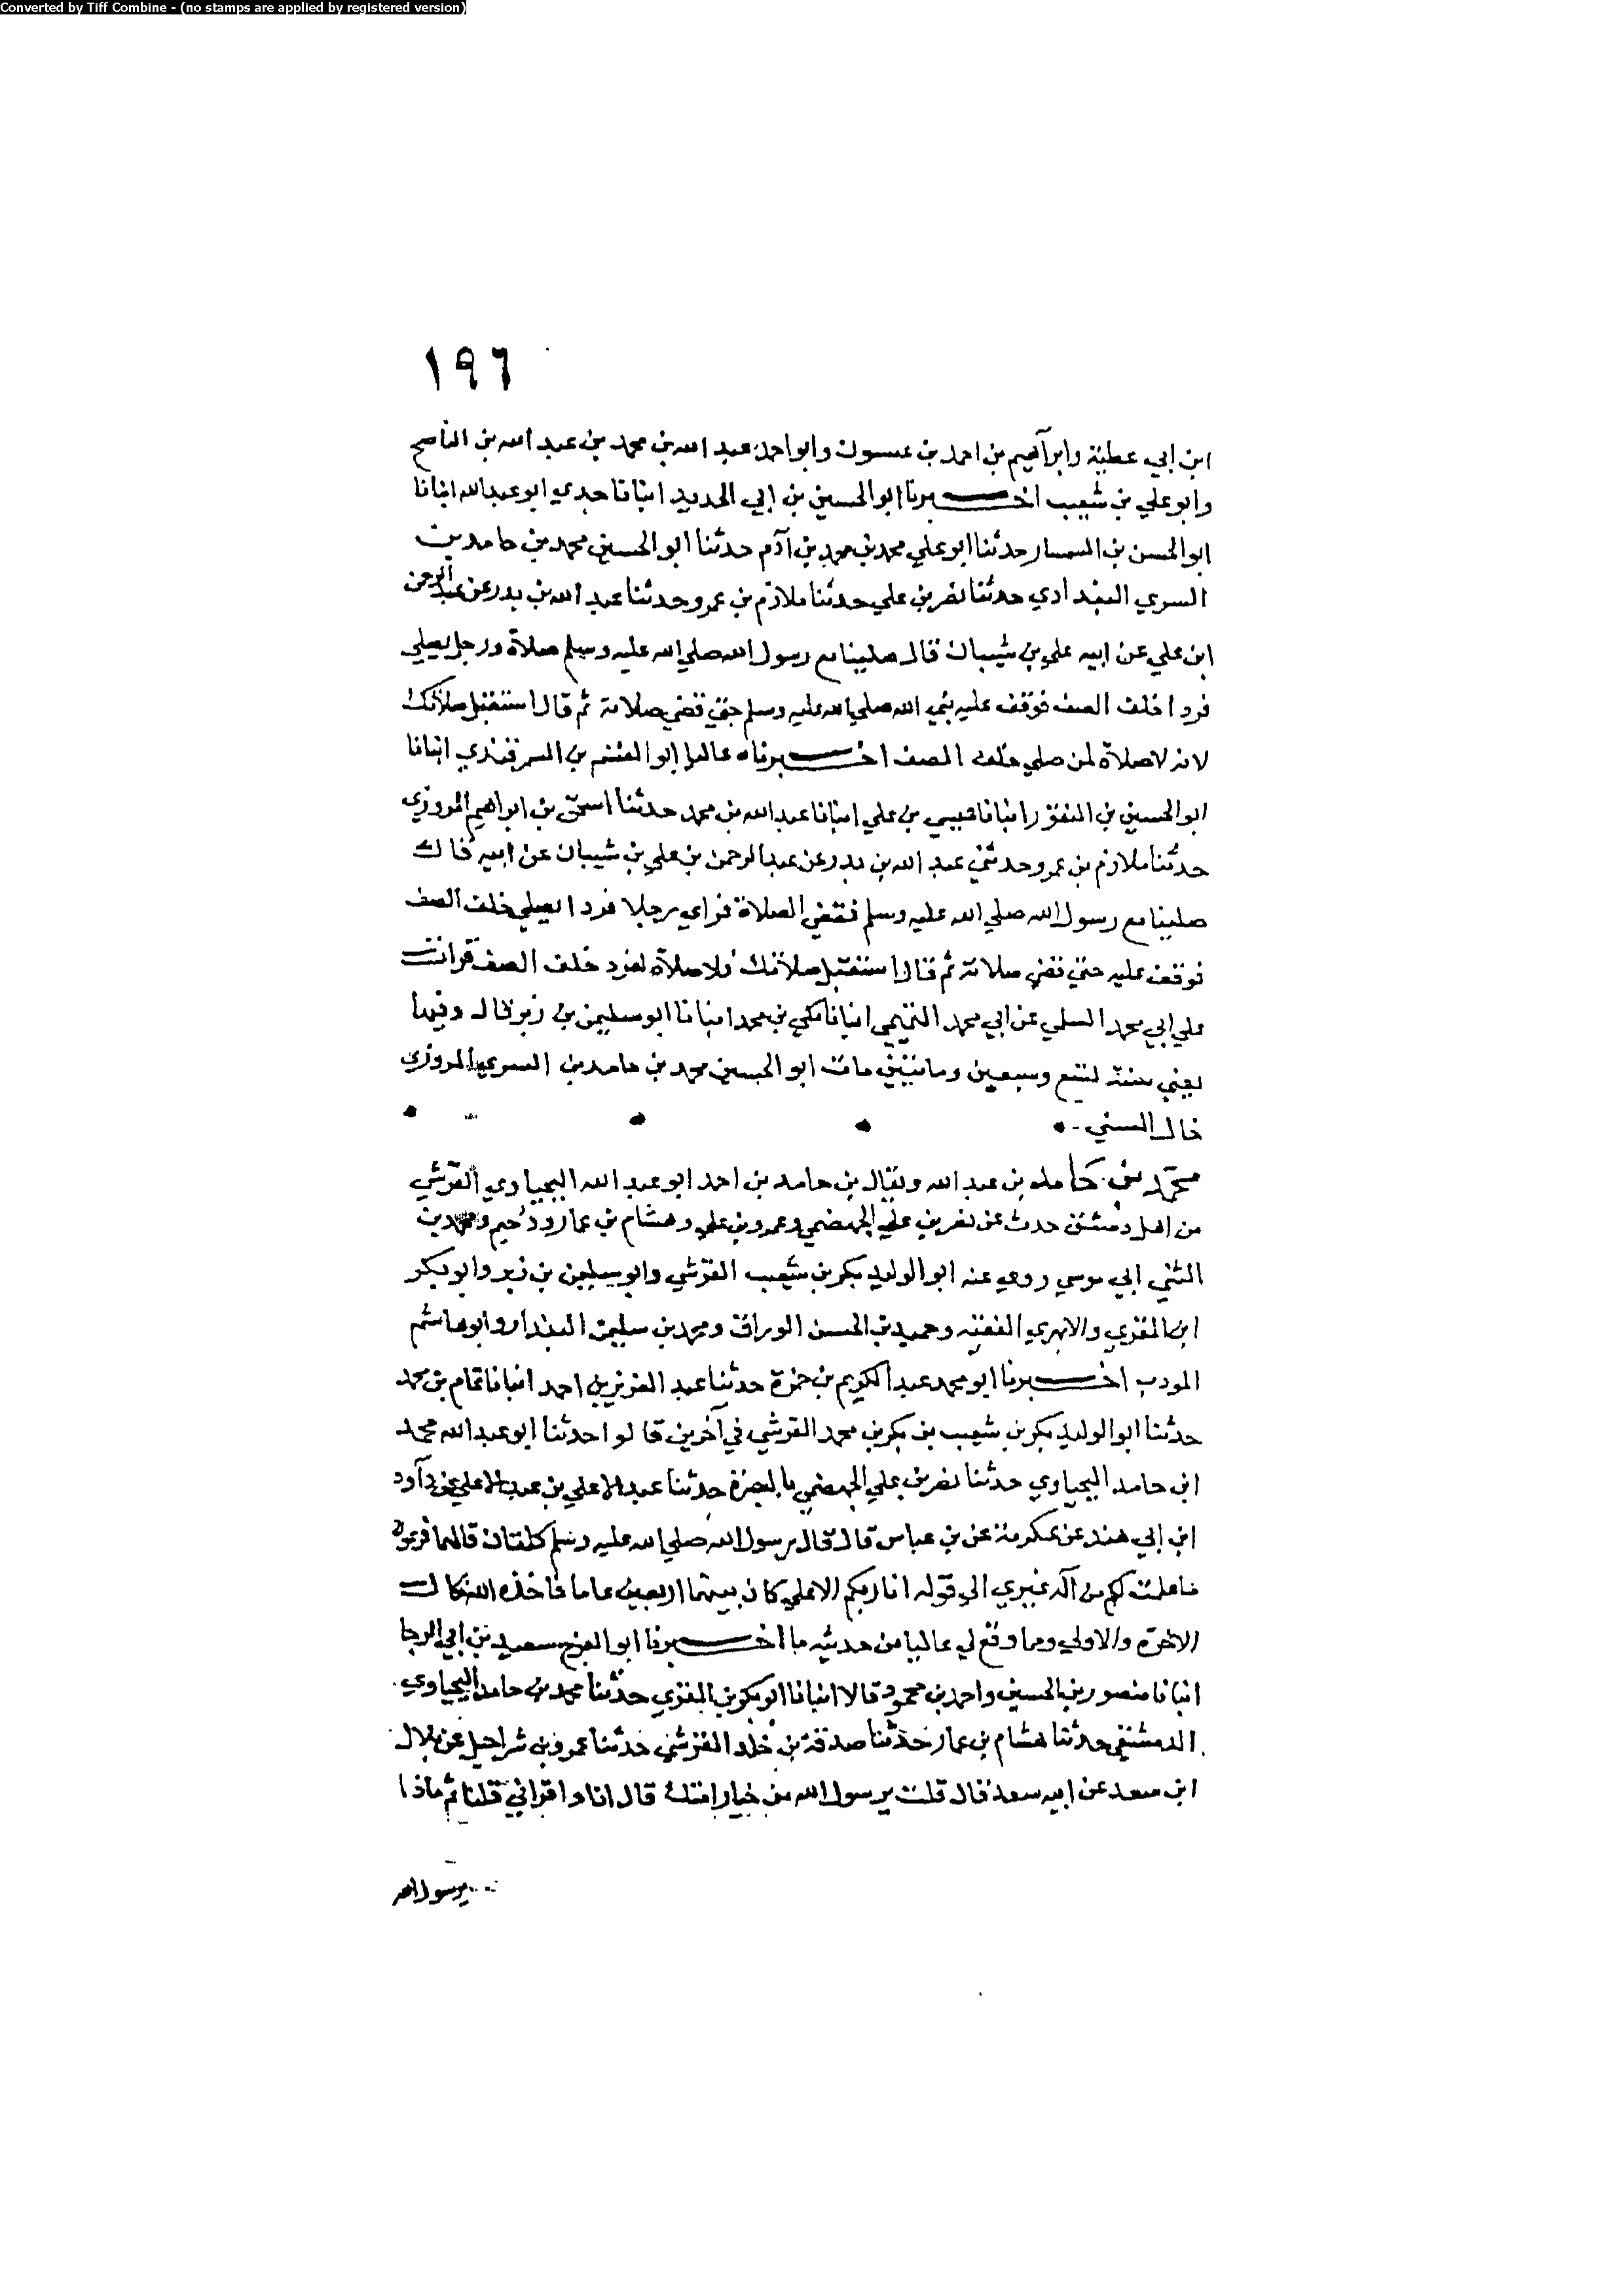 Converted by Tiff Combine - (no stamps are applied by registered version)
١٩٦
ابن ابي عطية وابرآهيم بن احمد بن عبسون وابو احمد عبد الله بن محمد بن عبد الله بن الناصح
وابو علي بن شعيب اخبرنا ابو الحسين بن ابي الحديد انبانا جدي ابو عبد الله انبانا
ابو الحسن بن السمسار حدثنا ابو علي محمد بن محمد بن آدم حدثنا ابو الحسين محمد بن حامد بن
السري البغدادي حدثنا نصر بن علي حدثنا ملازم بن عمرو حدثنا عبد الله بن بدر عن عبد الرحمن
ابن علي عن ابيه علي بن شيبان قال صلينا مع رسول الله صلي الله عليه وسلم صلاة ورجل يصلي
فردا خلف الصف فوقف عليه نبي الله صلي الله عليه وسلم حتي قضي صلاته ثم قال استقبل صلاتك
لانه لا صلاة لمن صلي خلف الصف اخبرناه عاليا ابو القسم بن السمرقندي انبانا
ابو الحسين بن النقور انبانا عيسي بن علي انبانا عبد الله بن محمد حدثنا اسحق بن ابراهيم المروزي
حدثنا ملازم بن عمرو حدثني عبد الله بن بدر عن عبد الرحمن بن علي بن شيبان عن ابيه قال
صلينا مع رسول الله صلي الله عليه وسلم فقضي الصلاة فراي رجلا فردا يصلي خلف الصف
فوقف عليه حتي قضي صلاته ثم قال استقبل صلاتك فلا صلاة لفرد خلف الصف قرات
علي ابي محمد السلمي عن ابي محمد التميمي انبانا مكي بن محمد انبانا ابو سليمن بن زبر قال وفيها
يعني سنة تسع وسبعين ومائتين مات ابو الحسين محمد بن حامد بن السري المروزي
خال السني
محمد بن حامد بن عبد الله ويقال بن حامد بن احمد ابو عبد الله اليحياوي القرشي
من اهل دمشق حدث عن نصر بن علي الجهضمي وعمرو بن علي وهشام بن عمار ودحيم ومحمد بن
المثني ابي موسي روي عنه ابو الوليد بكر بن شعيب القرشي وابو سليمن بن زبر وابو بكر
ابن المقري والابهري الفقيه وحميد بن الحسن الوراق ومحمد بن سليمن البندار وابو هاشم
المودب اخبرنا ابو محمد عبد الكريم بن حمزة حدثنا عبد العزيز بن احمد انبانا تمام بن محمد
حدثنا ابو الوليد بكر بن شعيب بن بكر بن محمد القرشي في آخرين قالوا حدثنا ابو عبد الله محمد
ابن حامد اليحياوي حدثنا نصر بن علي الجهضمي بالبصرة حدثنا عبد الاعلي بن عبد الاعلي عن دآود
ابن ابي هند عن عكرمة عن بن عباس قال قال رسول الله صلي الله عليه وسلم كلمتان قالهما فرعون
ما علمت لكم من آله غيري الي قوله انا ربكم الاعلي كان بينهما اربعين عاما فاخذه الله نكال
الاخرة والاولي ومما وقع لي عاليا من حديثه ما اخبرنا ابو الفرج سعيد بن ابي الرجا
انبانا منصور بن الحسين واحمد بن محمود قالا انبانا ابو بكر بن المقري حدثنا محمد بن حامد اليحياوي
الدمشقي حدثنا هشام بن عمار حدثنا صدقة بن خلد القرشي حدثنا عمرو بن شراحيل عن بلال
ابن سعد عن ابيه سعد قال قلت يرسول الله من خيار امتك قال انا واقراني قلنا ثم ماذا
يرسول الله